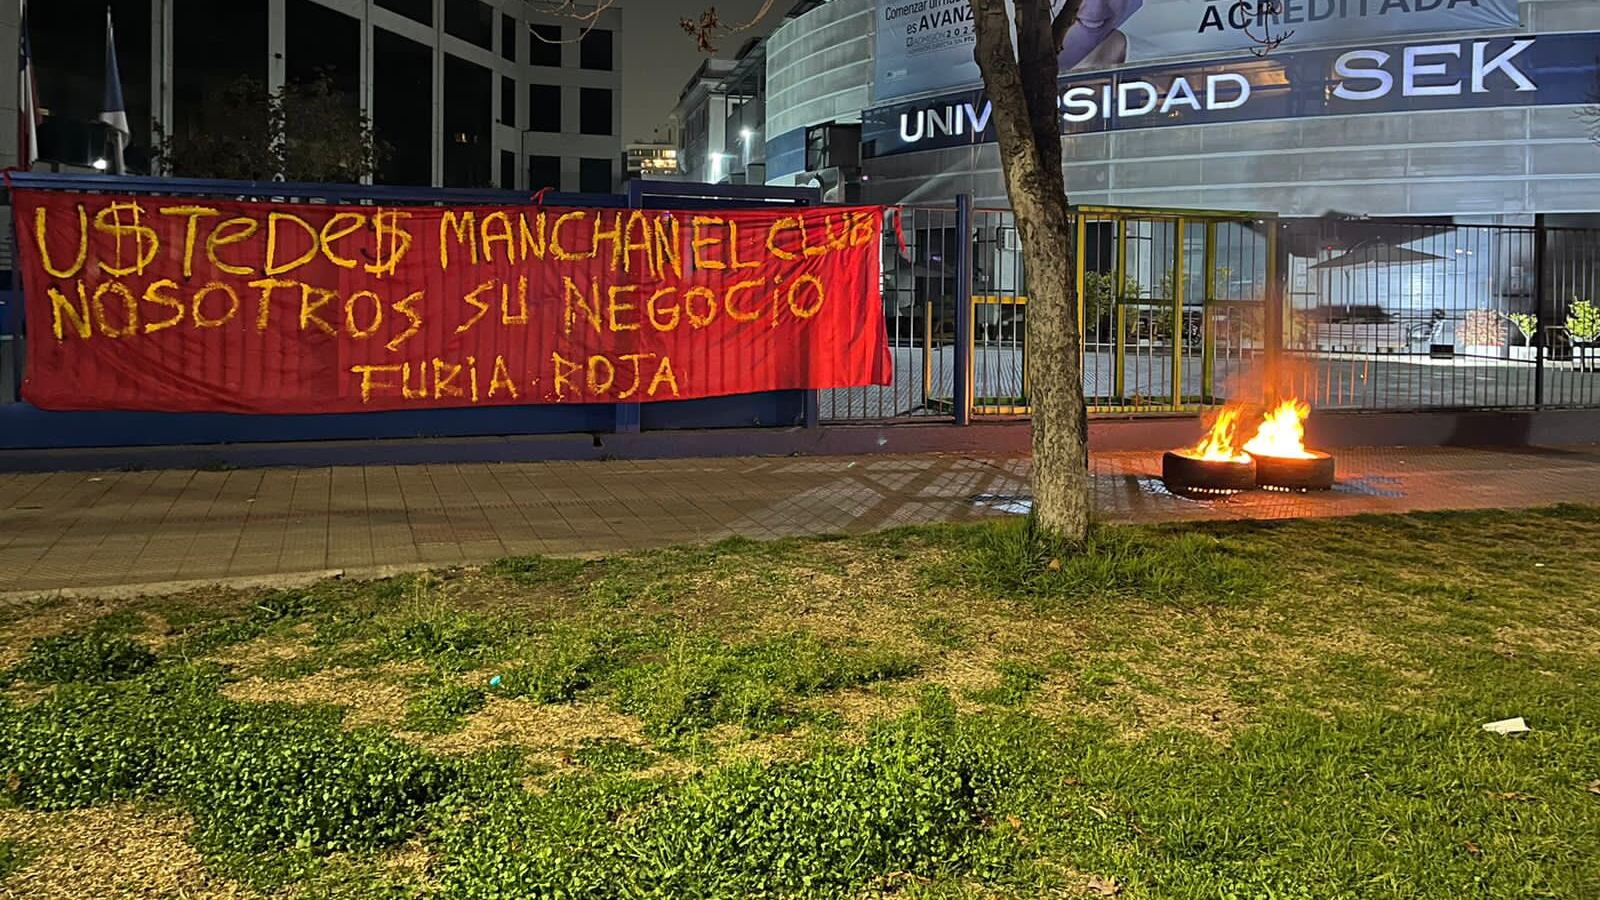 Comenzar un
es AVANZ
ADMISIÓN 202
ACREDITADA
UNIV RSIDAD SEK
U$TeDe$ MANCHAN EL CLUB
NOSOTROS SU NEGOCiO
FURiA ROJA